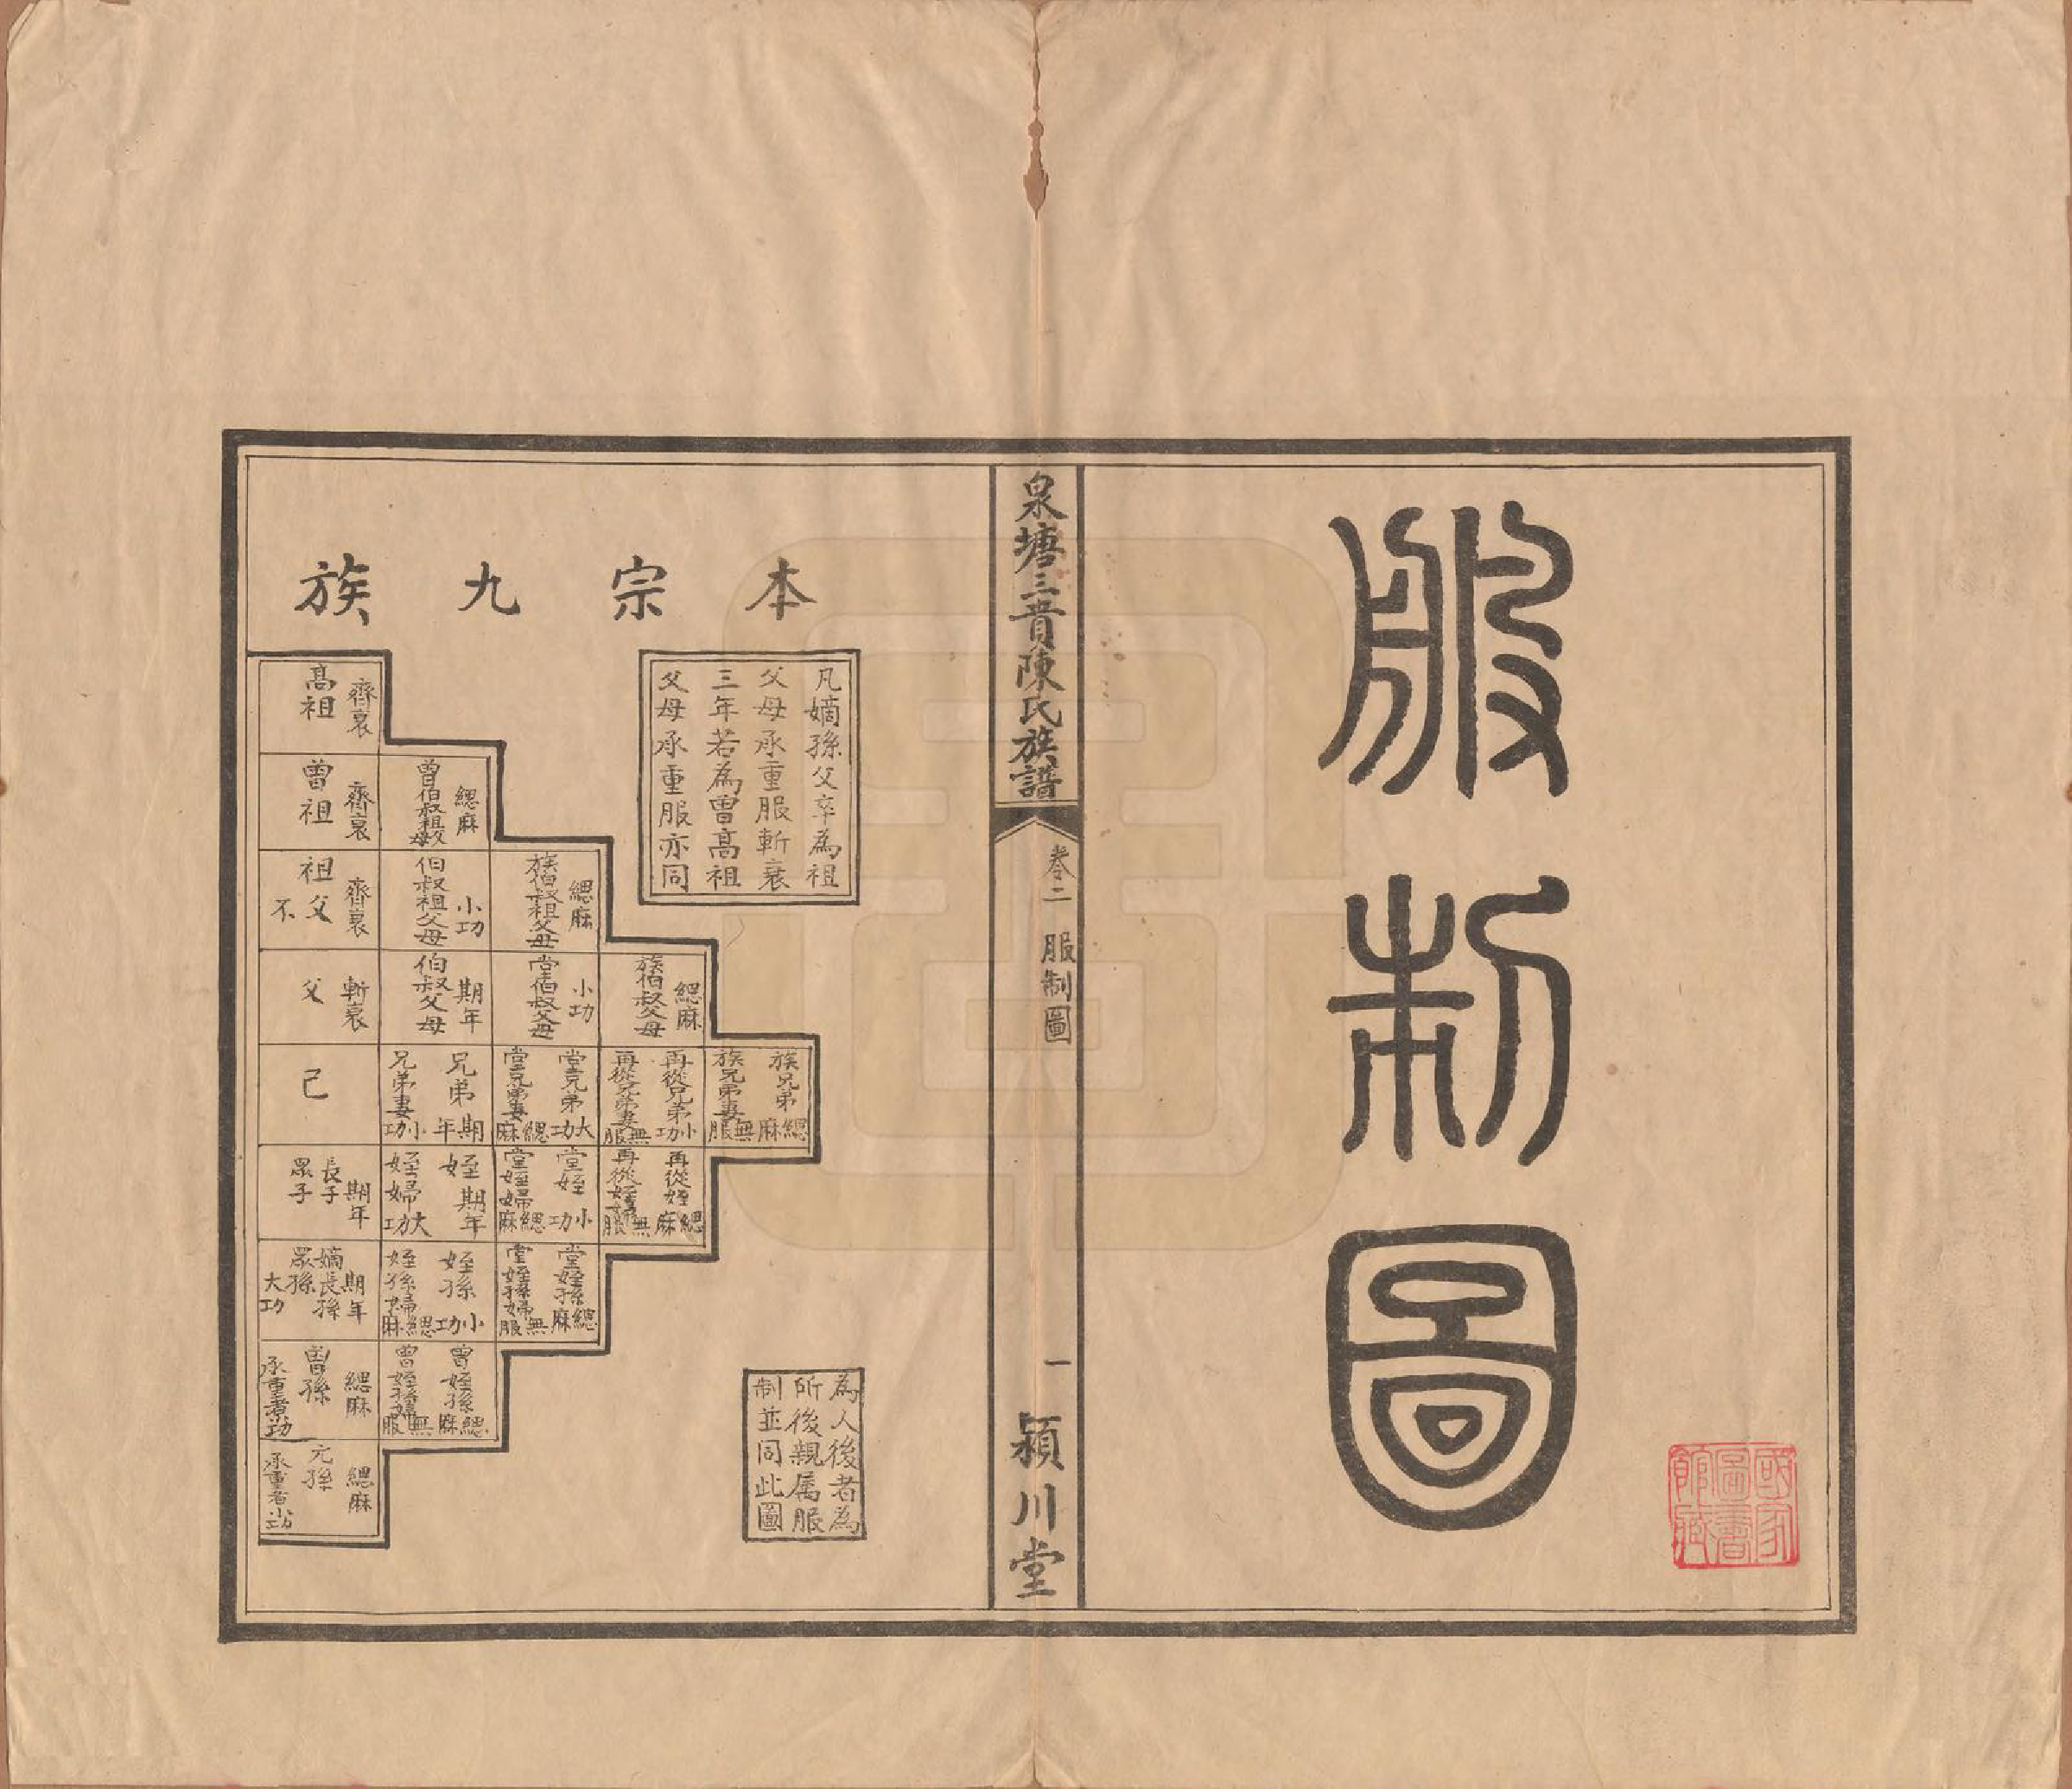 服制圖
國家圖書館藏
泉塘三賁陳氏族譜
卷二 服制圖
一
潁川堂
本宗九族
凡嫡孫父卒為祖
父母承重服斬衰
三年若為曾高祖
父母承重服亦同
為人後者為
所後親属服
制並同此圖
齊衰
高祖
緦麻
曾伯叔祖父母
齊衰
曾祖
緦麻
族伯叔祖父母
小功
伯叔祖父母
齊衰
祖父
不
緦麻
族伯叔父母
小功
堂伯叔父母
期年
伯叔父母
斬衰
父
族兄弟緦麻
族兄弟妻無服
再從兄弟小功
再從兄弟妻無服
堂兄弟大功
堂兄弟妻緦麻
兄弟期年
兄弟妻小功
己
再從姪緦麻
再從姪婦無服
堂姪小功
堂姪婦緦麻
姪期年
姪婦大功
期年
長子
眾子
堂姪孫緦麻
堂姪孫婦無服
姪孫小功
姪孫婦緦麻
期年
嫡長孫
眾孫
大功
曾姪孫緦麻
曾姪孫婦無服
緦麻
曾孫
緦麻
元孫
承重者小功